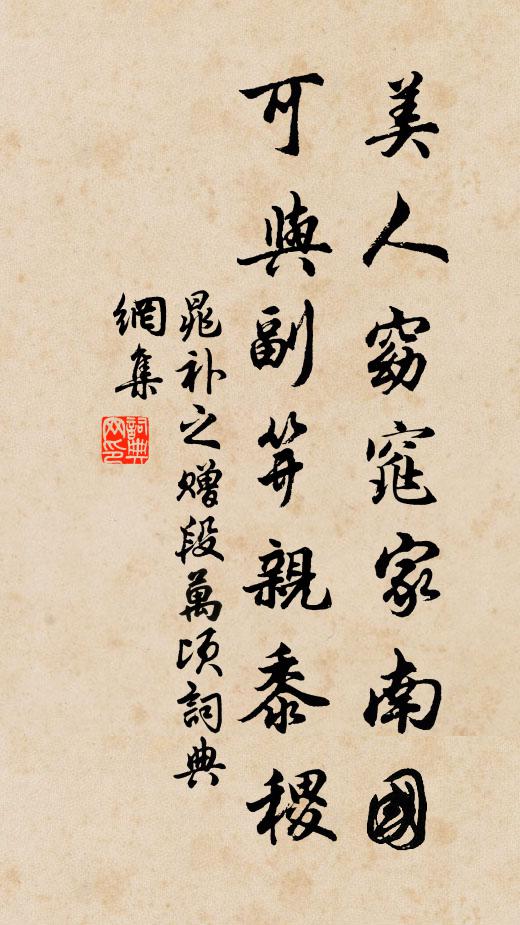 美人窈窕家南國
可與副笄親黍稷
晁补之赠段萬頃詞典
網集
詞典网印